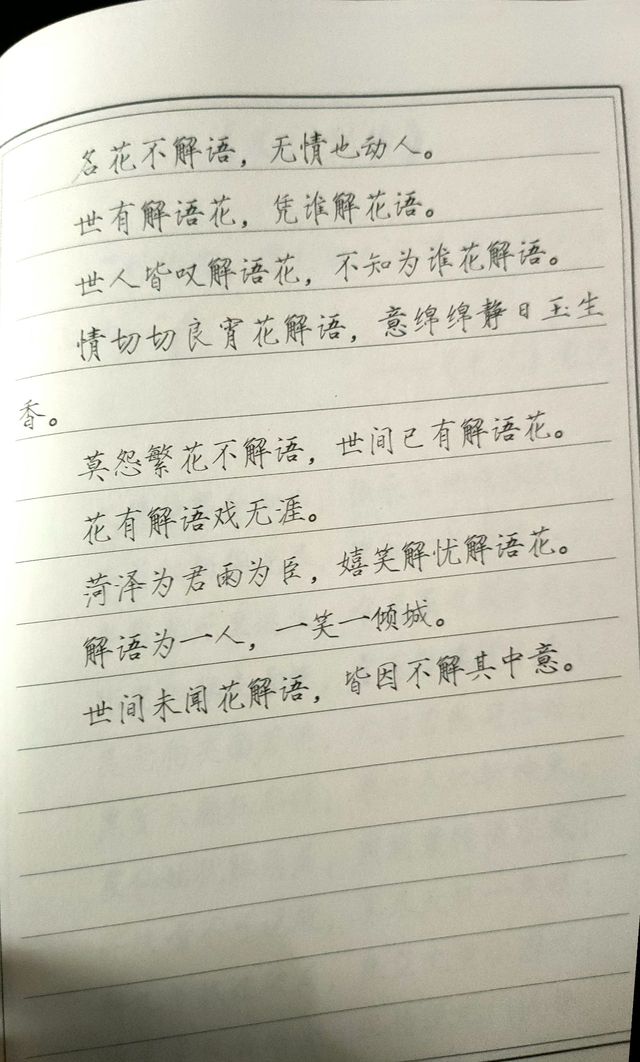 名花不解语，无情也动人。
世有解语花，凭谁解花语。
世人皆叹解语花，不知为谁花解语。
情切切良宵花解语，意绵绵静日玉生
香。
莫怨繁花不解语，世间已有解语花。
花有解语戏无涯。
菏泽为君雨为臣，嬉笑解忧解语花。
解语为一人，一笑一倾城。
世间未闻花解语，皆因不解其中意。